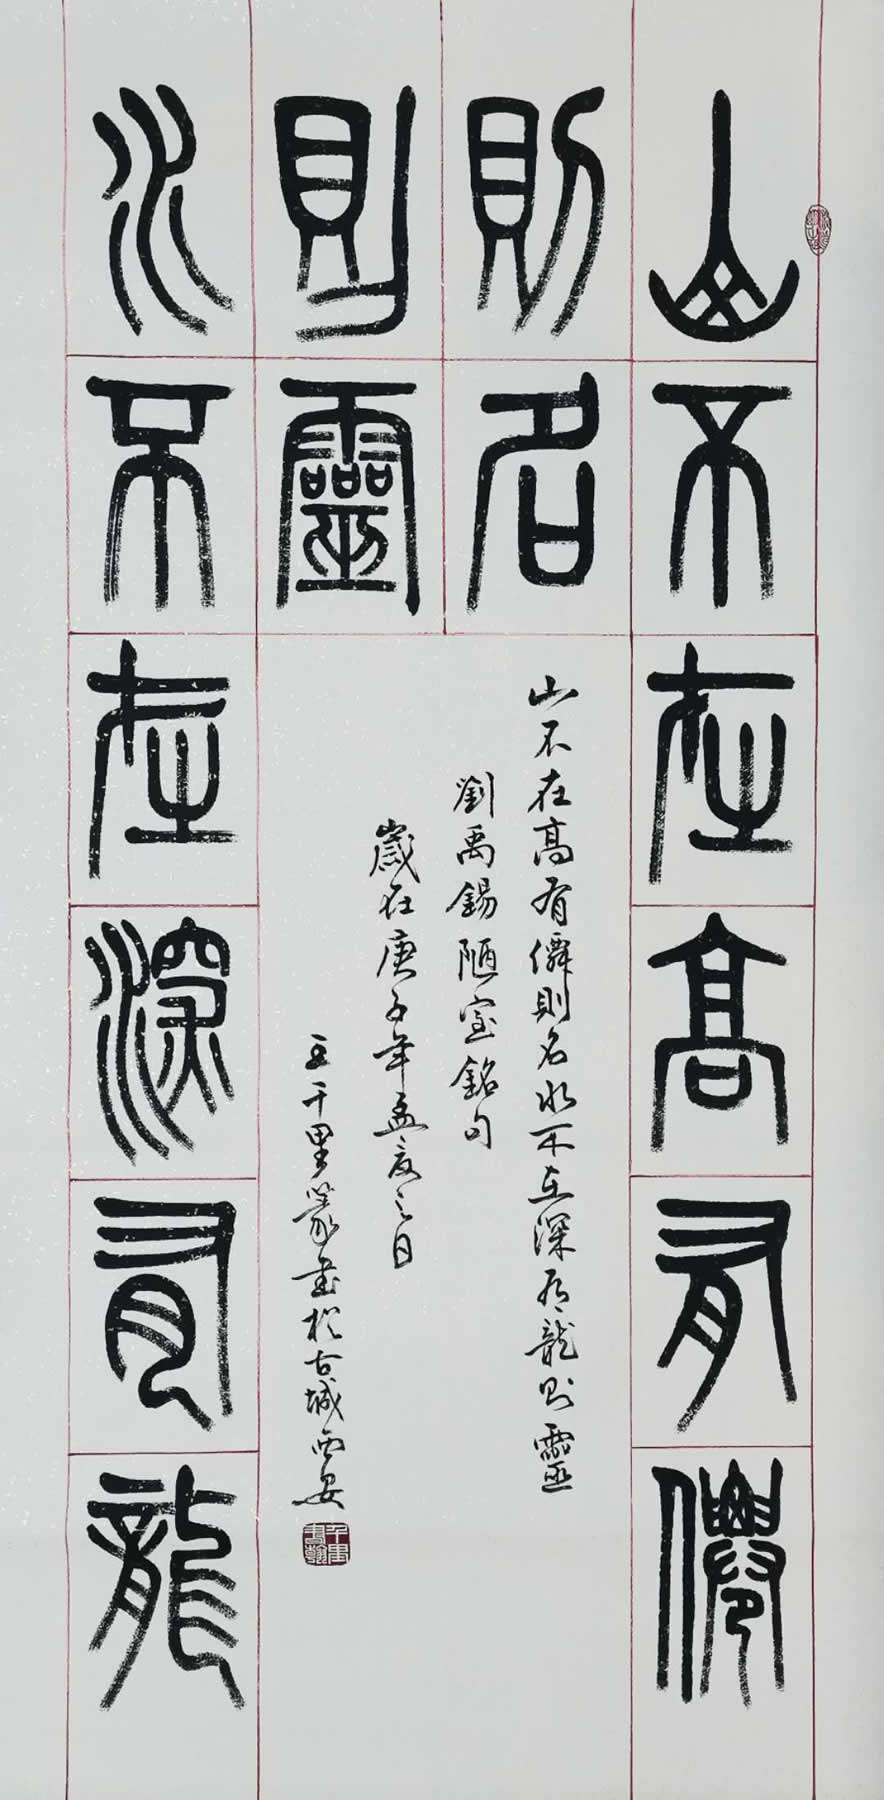 山不在高有僊
則名
水不在深有龍
則靈
山不在高有僊則名水不在深有龍則靈
劉禹錫陋室銘句
歲在庚子年孟夏之日
王千里篆書於古城西安